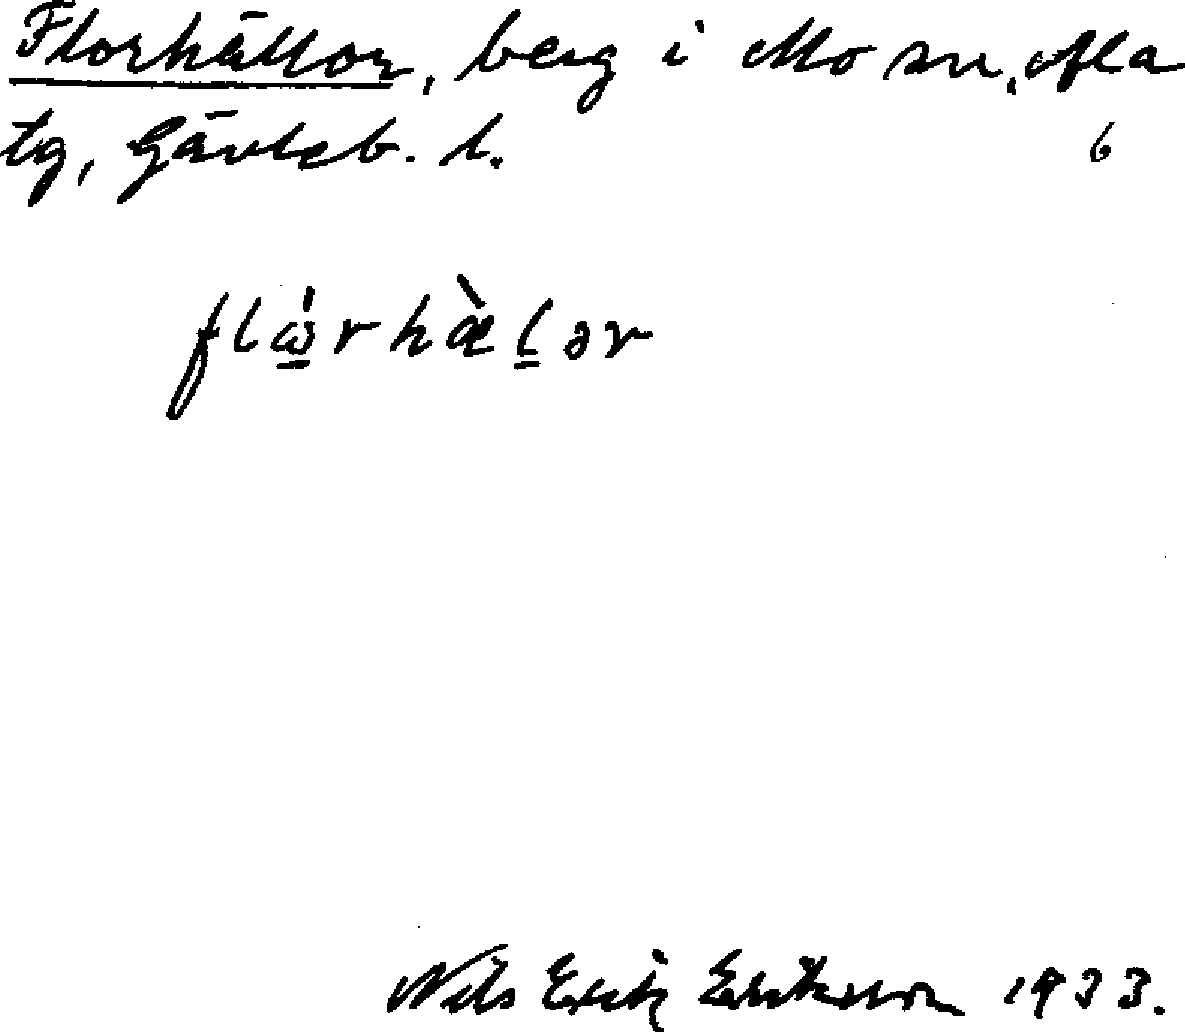 Florhällor, berg i Mo sn, Ala
tg, Gävleb. l. 6
flώ̲rhæ̀l̲ər
Nils Erik Eriksson 1933.